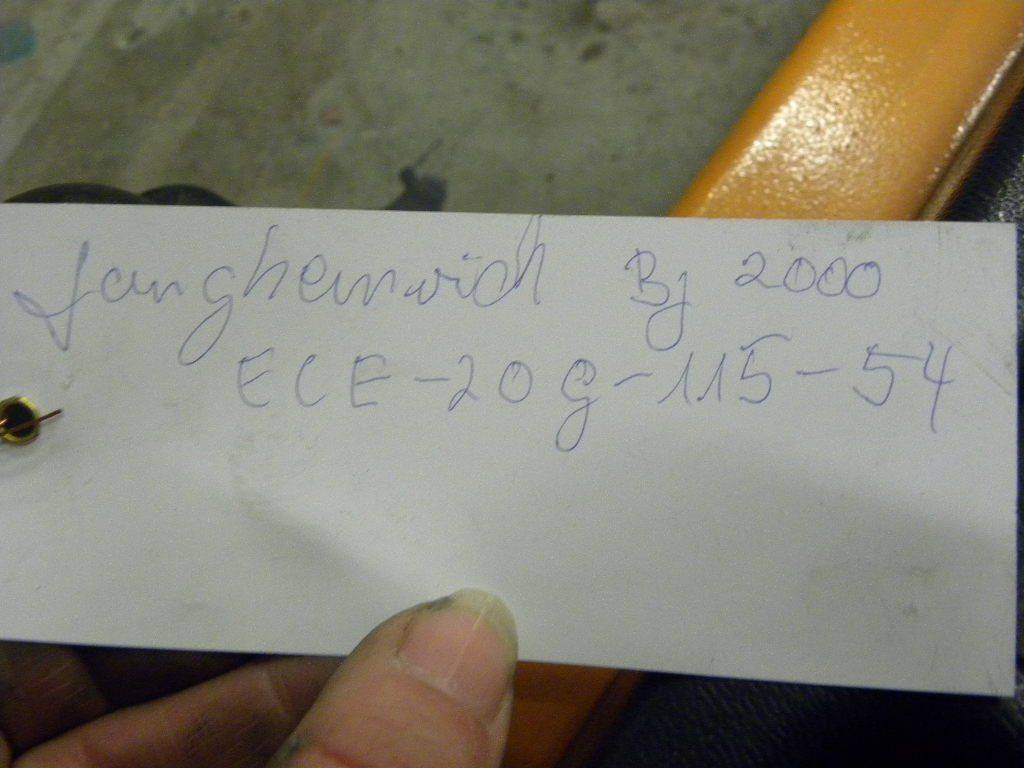 Jungheinrich Bj 2000
ECE-20 g-115-54